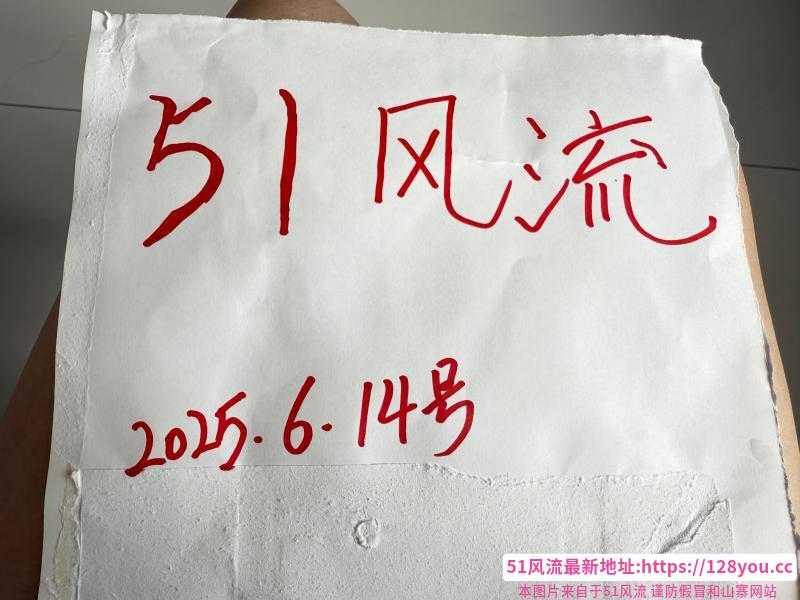 51风流
2025.6.14号
51风流最新地址:https://128you.cc
本图片来自于51风流 谨防假冒和山寨网站